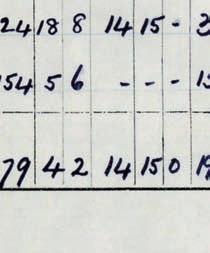 24 18 8 14 15 -
154 5 6 - - - 15
79 4 2 14 15 0 19